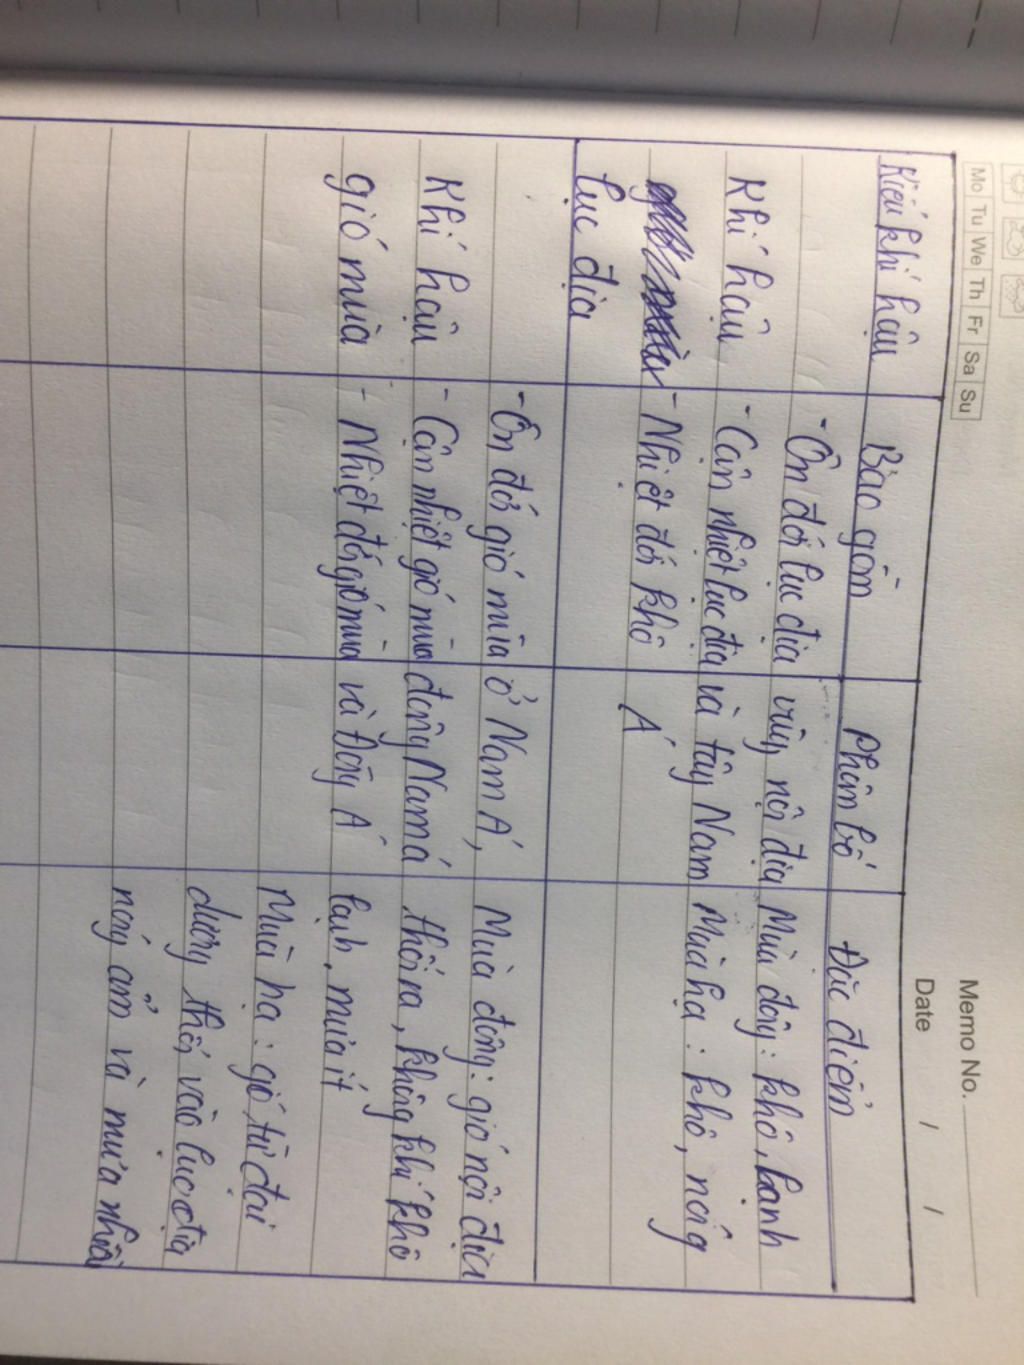 Memo No.
Mo Tu We Th Fr Sa Su
Date / /
Kiểu khí hậu Bao gồm Phân bố Đặc điểm
- Ôn đới lục địa vùng nội địa Mùa đông: khô, hanh
Khí hậu - Cận nhiệt lục địa và tây Nam Mùa hạ: khô, nóng
- Nhiệt đới khô Á
lục địa
- Ôn đới gió mùa ở Nam Á, Mùa đông: gió nội địa
Khí hậu - Cận nhiệt gió mùa đông Nam á thổi ra, không khí khô
gió mùa - Nhiệt đới gió mùa và Đông Á lạnh, mưa ít
Mùa hạ: gió từ đại
dương thổi vào lục địa
nóng ẩm và mưa nhiều